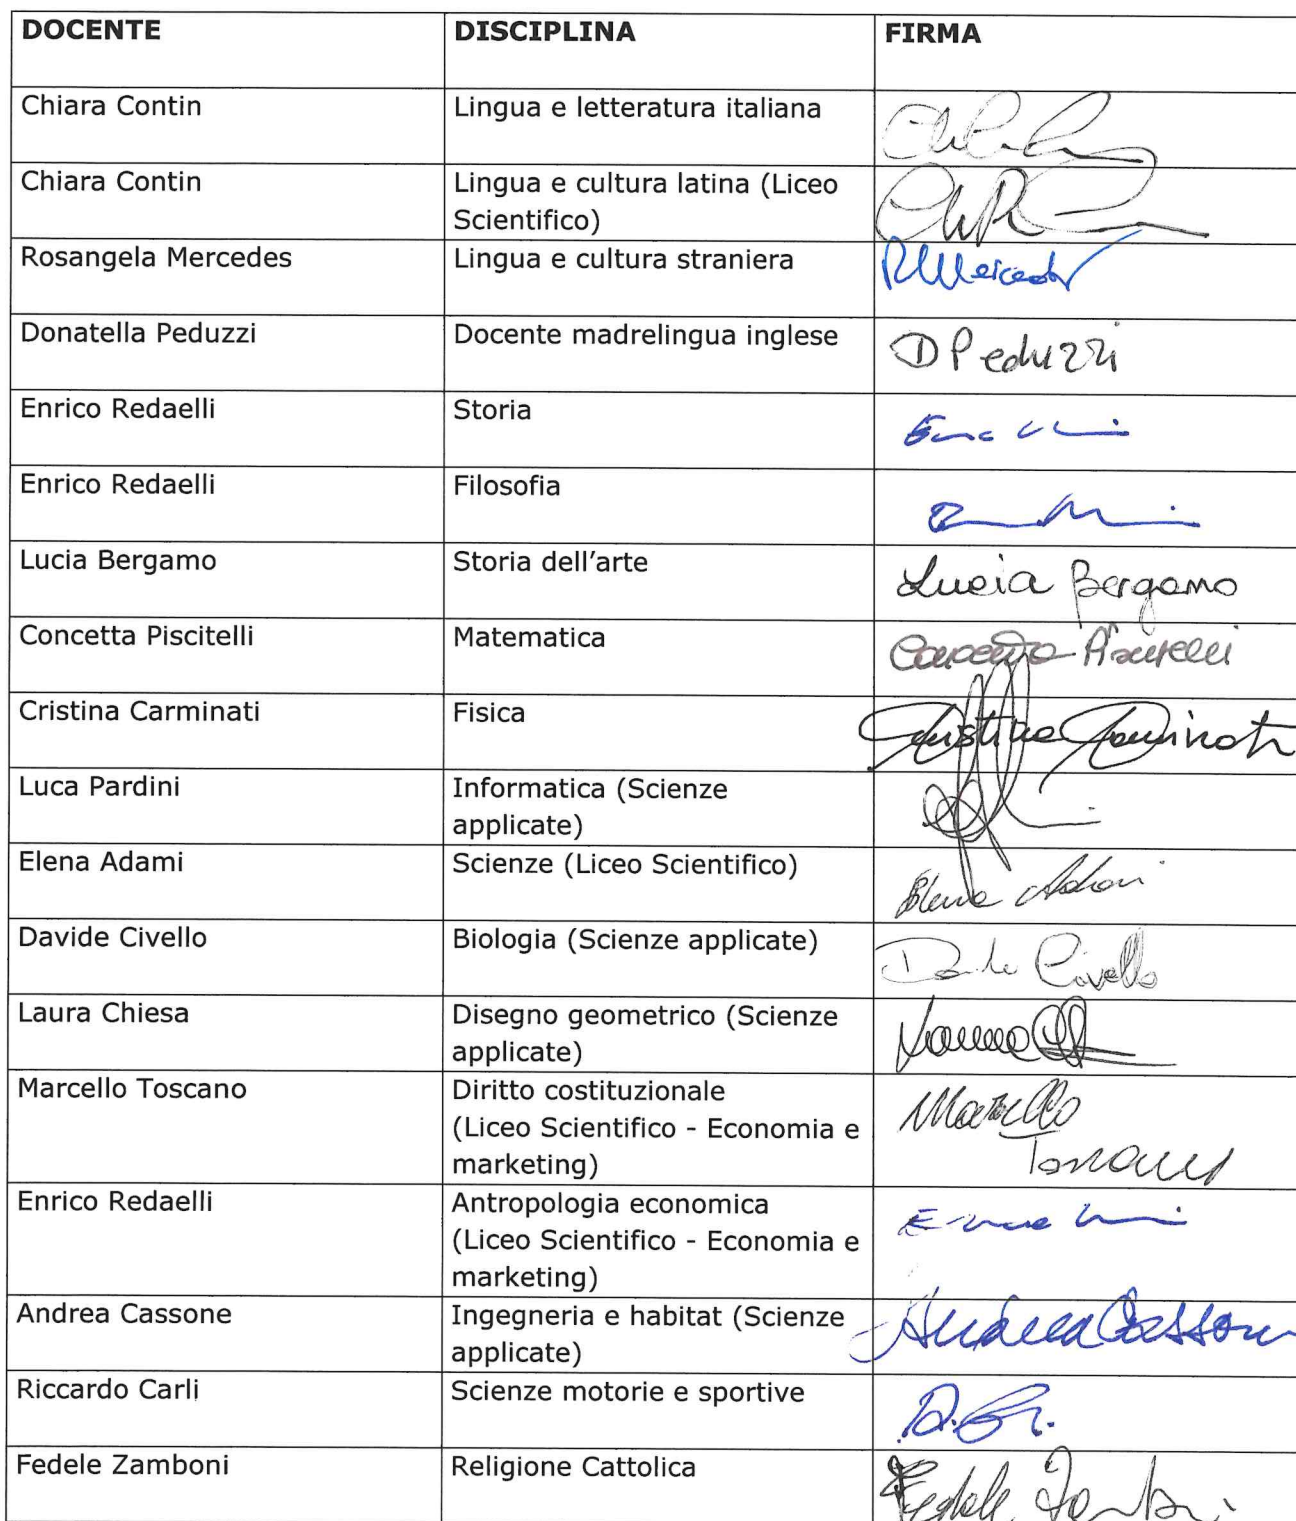 DOCENTE DISCIPLINA FIRMA
Chiara Contin Lingua e letteratura italiana
Chiara Contin Lingua e cultura latina (Liceo
Scientifico)
Rosangela Mercedes Lingua e cultura straniera RMercedes
Donatella Peduzzi Docente madrelingua inglese D Peduzzi
Enrico Redaelli Storia
Enrico Redaelli Filosofia
Lucia Bergamo Storia dell'arte Lucia Bergamo
Concetta Piscitelli Matematica Concetta Piscitelli
Cristina Carminati Fisica Cristina Carminati
Luca Pardini Informatica (Scienze
applicate)
Elena Adami Scienze (Liceo Scientifico) Elena Adami
Davide Civello Biologia (Scienze applicate) Davide Civello
Laura Chiesa Disegno geometrico (Scienze
applicate)
Marcello Toscano Diritto costituzionale Marcello
(Liceo Scientifico - Economia e Toscano
marketing)
Enrico Redaelli Antropologia economica
(Liceo Scientifico - Economia e
marketing)
Andrea Cassone Ingegneria e habitat (Scienze Andrea Cassone
applicate)
Riccardo Carli Scienze motorie e sportive
Fedele Zamboni Religione Cattolica Fedele Zamboni